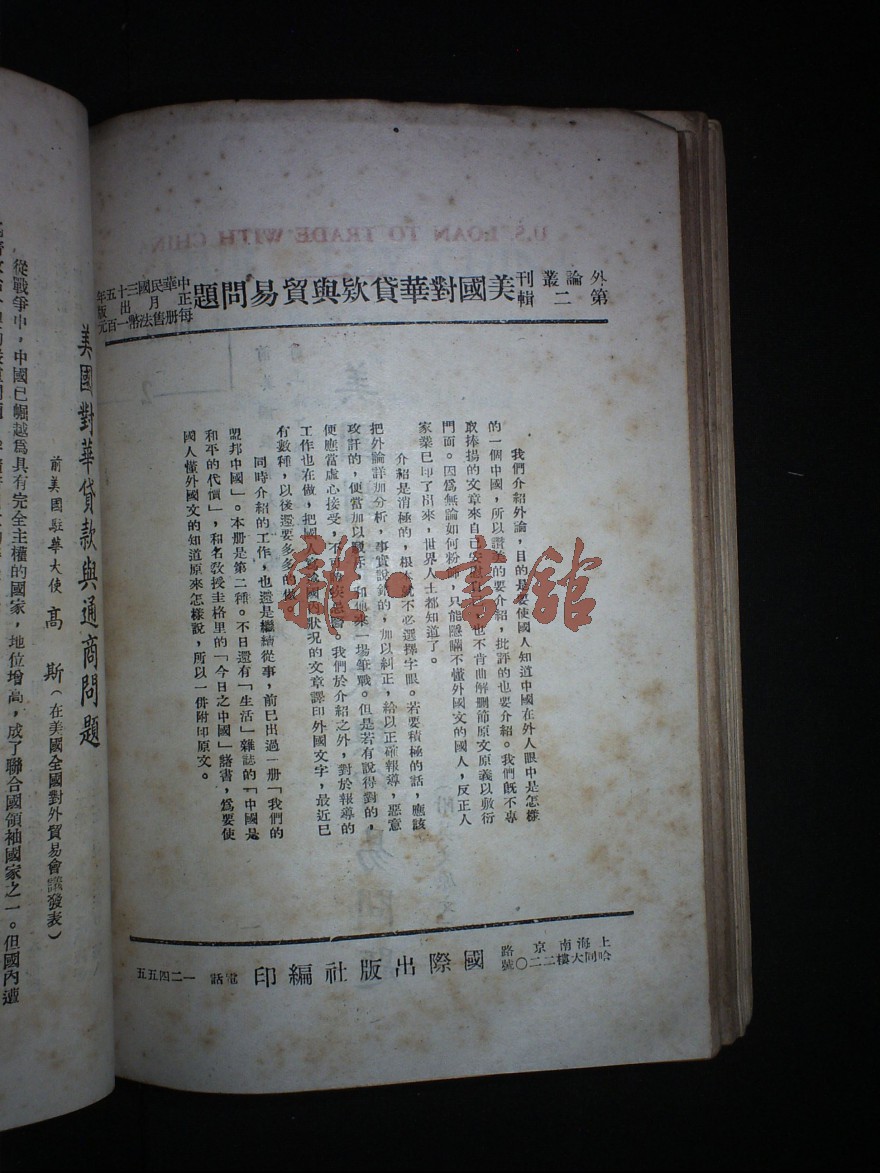 U.S. LOAN TO TRADE WITH CHINA
外論叢刊
第二輯
美國對華貸欵與貿易問題
中華民國三十五年
正月出版
每册售法幣一百元
我們介紹外論，目的是要使國人知道中國在外人眼中是怎樣
的一個中國，所以讚美的要介紹，批評的也要介紹。我們旣不專
取捧揚的文章來自己安慰
也不肯曲解删節原文原義以敷衍
門面。因爲無論如何粉飾，只能隱瞞不懂外國文的國人，反正人
家業已印了出來，世界人士都知道了。
介紹是消極的，根
就不必選擇字眼。若要積極的話，應該
把外論詳加分析，事實說錯的，加以糾正，給以正確報導，惡意
攻訐的，便當加以駁斥，和他來一場筆戰。但是若有說得對的，
便應當虛心接受，不
疾忌醫。我們於介紹之外，對於報導的
工作也在做，把國
國內狀況的文章譯印外國文字，最近已
有數種，以後還要多多的做。
同時介紹的工作，也還是繼續從事，前已出過一册「我們的
盟邦中國」。本册是第二種。不日還有「生活」雜誌的「中國是
和平的代價」，和名教授圭格里的「今日之中國」諸書，爲要使
國人懂外國文的知道原來怎樣說，所以一併附印原文。
上海南京路
哈同大樓二二〇號
國際出版社編印
電話 一二四五五
雜·書舘
美國對華貸款與通商問題
前美國駐華大使 高 斯（在美國全國對外貿易會議發表）
從戰爭中，中國已崛越爲具有完全主權的國家，地位增高，成了聯合國領袖國家之一。但國內遭